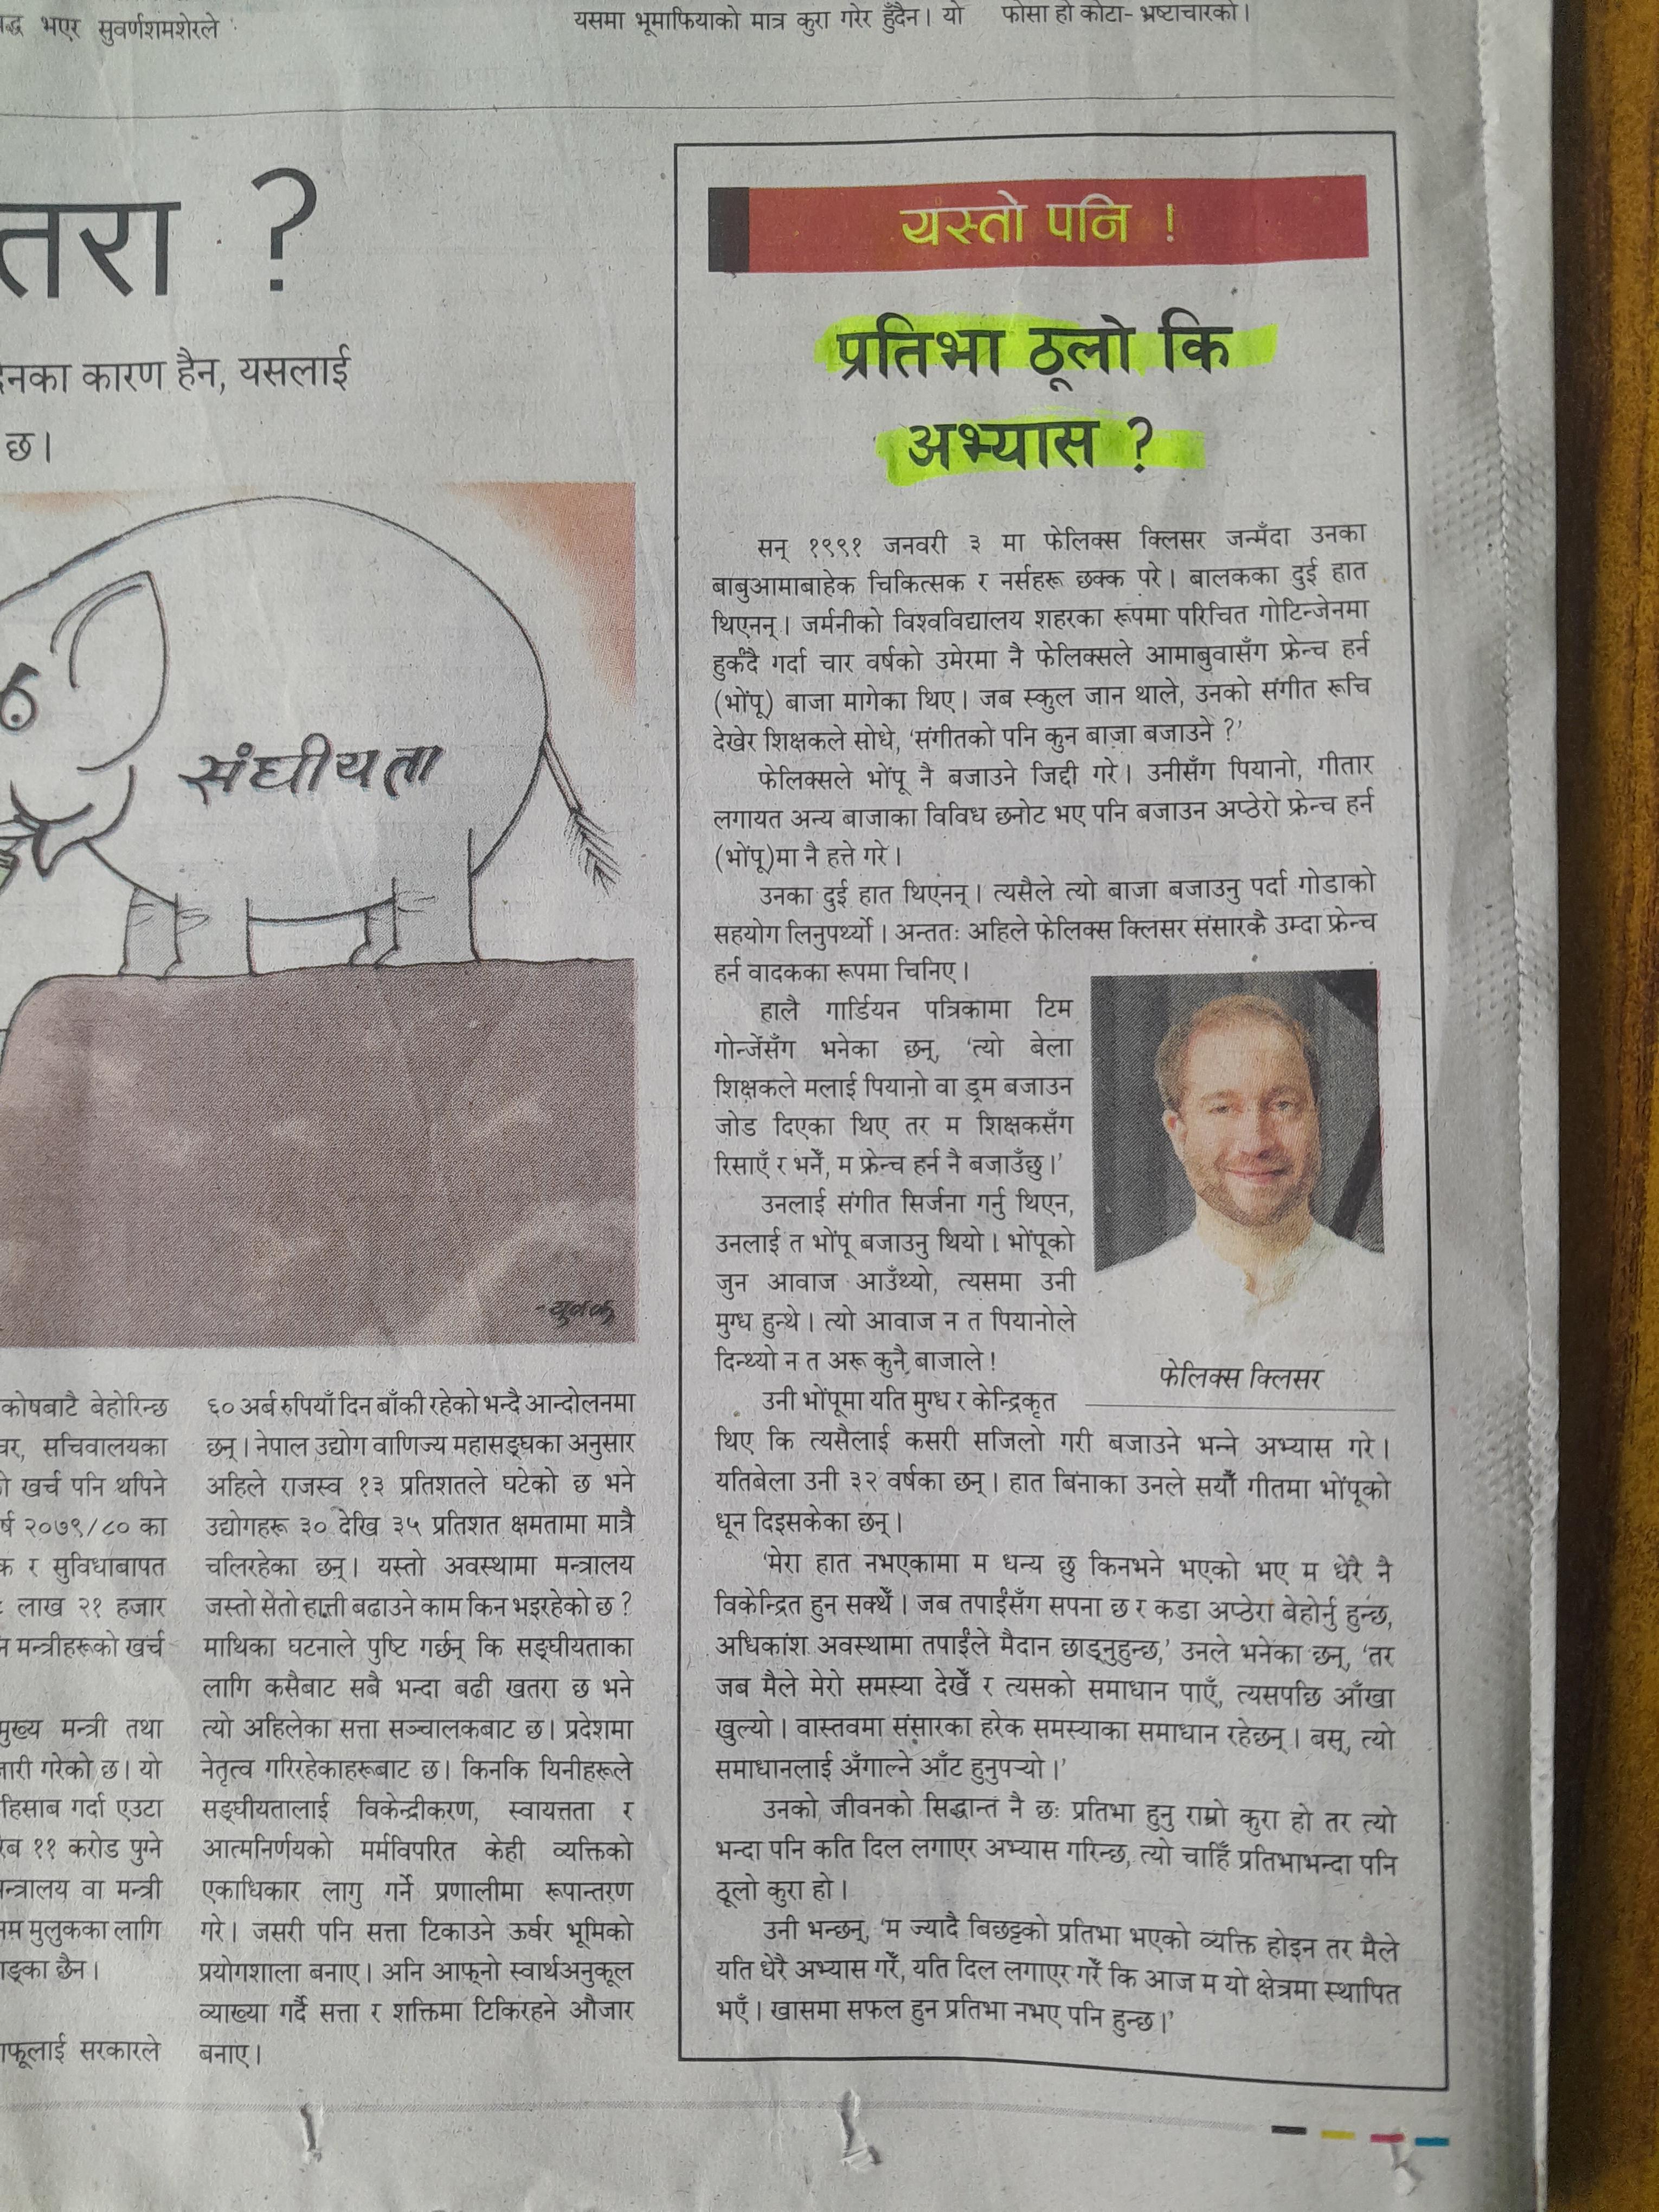 भएर सुवर्णशमशेरले
यसमा भूमाफियाको मात्र कुरा गरेर हुँदैन। यो
फोसा हो कोटा- भ्रष्टाचारको।
तरा ?
कारण हैन, यसलाई
छ।
संघीयता
कोषबाटै बेहोरिन्छ
सचिवालयका
खर्च पनि थपिने
२०७९/८० का
र सुविधाबापत
लाख २१ हजार
मन्त्रीहरूको खर्च
मुख्य मन्त्री तथा
गरेको छ। यो
हिसाब गर्दा एउटा
११ करोड पुग्ने
वा मन्त्री
मुलुकका लागि
छैन।
सरकारले
६० अर्ब रुपियाँ दिन बाँकी रहेको भन्दै आन्दोलनमा
छन्। नेपाल उद्योग वाणिज्य महासङ्घका अनुसार
अहिले राजस्व १३ प्रतिशतले घटेको छ भने
उद्योगहरू ३० देखि ३५ प्रतिशत क्षमतामा मात्रै
चलिरहेका छन्। यस्तो अवस्थामा मन्त्रालय
जस्तो सेतो हात्ती बढाउने काम किन भइरहेको छ ?
माथिका घटनाले पुष्टि गर्छन् कि सङ्घीयताका
लागि कसैबाट सबै भन्दा बढी खतरा छ भने
त्यो अहिलेका सत्ता सञ्चालकबाट छ। प्रदेशमा
नेतृत्व गरिरहेकाहरूबाट छ। किनकि यिनीहरूले
सङ्घीयतालाई विकेन्द्रीकरण, स्वायत्तता र
आत्मनिर्णयको मर्मविपरित केही व्यक्तिको
एकाधिकार लागु गर्ने प्रणालीमा रूपान्तरण
गरे। जसरी पनि सत्ता टिकाउने ऊर्वर भूमिको
प्रयोगशाला बनाए। अनि आफ्नो स्वार्थअनुकूल
व्याख्या गर्दै सत्ता र शक्तिमा टिकिरहने औजार
बनाए।
यस्तो पनि !
प्रतिभा ठूलो कि
अभ्यास ?
सन् १९९१ जनवरी ३ मा फेलिक्स क्लिसर जन्मँदा उनका
बाबुआमाबाहेक चिकित्सक र नर्सहरू छक्क परे। बालकका दुई हात
थिएनन्। जर्मनीको विश्वविद्यालय शहरका रूपमा परिचित गोटिन्जेनमा
हुर्कँदै गर्दा चार वर्षको उमेरमा नै फेलिक्सले आमाबुवासँग फ्रेन्च हर्न
(भोंपू) बाजा मागेका थिए। जब स्कुल जान थाले, उनको संगीत रूचि
देखेर शिक्षकले सोधे, ‘संगीतको पनि कुन बाजा बजाउने ?’
फेलिक्सले भोंपू नै बजाउने जिद्दी गरे। उनीसँग पियानो, गीतार
लगायत अन्य बाजाका विविध छनोट भए पनि बजाउन अप्ठेरो फ्रेन्च हर्न
(भोंपू)मा नै हत्ते गरे।
उनका दुई हात थिएनन्। त्यसैले त्यो बाजा बजाउनु पर्दा गोडाको
सहयोग लिनुपर्थ्यो। अन्ततः अहिले फेलिक्स क्लिसर संसारकै उम्दा फ्रेन्च
हर्न वादकका रूपमा चिनिए।
हालै गार्डियन पत्रिकामा टिम
गोन्जेंसँग भनेका छन्, ‘त्यो बेला
शिक्षकले मलाई पियानो वा ड्रम बजाउन
जोड दिएका थिए तर म शिक्षकसँग
रिसाएँ र भनेँ, म फ्रेन्च हर्न नै बजाउँछु।’
उनलाई संगीत सिर्जना गर्नु थिएन,
उनलाई त भोंपू बजाउनु थियो। भोंपूको
जुन आवाज आउँथ्यो, त्यसमा उनी
मुग्ध हुन्थे। त्यो आवाज न त पियानोले
दिन्थ्यो न त अरू कुनै बाजाले !
फेलिक्स क्लिसर
उनी भोंपूमा यति मुग्ध र केन्द्रिकृत
थिए कि त्यसैलाई कसरी सजिलो गरी बजाउने भन्ने अभ्यास गरे।
यतिबेला उनी ३२ वर्षका छन्। हात बिनाका उनले सयौँ गीतमा भोंपूको
धून दिइसकेका छन्।
‘मेरा हात नभएकामा म धन्य छु किनभने भएको भए म धेरै नै
विकेन्द्रित हुन सक्थेँ। जब तपाईंसँग सपना छ र कडा अप्ठेरा बेहोर्नु हुन्छ,
अधिकांश अवस्थामा तपाईंले मैदान छाड्नुहुन्छ,’ उनले भनेका छन्, ‘तर
जब मैले मेरो समस्या देखेँ र त्यसको समाधान पाएँ, त्यसपछि आँखा
खुल्यो। वास्तवमा संसारका हरेक समस्याका समाधान रहेछन्। बस्, त्यो
समाधानलाई अँगाल्ने आँट हुनुपर्‍यो।’
उनको जीवनको सिद्धान्त नै छः प्रतिभा हुनु राम्रो कुरा हो तर त्यो
भन्दा पनि कति दिल लगाएर अभ्यास गरिन्छ, त्यो चाहिँ प्रतिभाभन्दा पनि
ठूलो कुरा हो।
उनी भन्छन्, ‘म ज्यादै बिछट्टको प्रतिभा भएको व्यक्ति होइन तर मैले
यति धेरै अभ्यास गरेँ, यति दिल लगाएर गरेँ कि आज म यो क्षेत्रमा स्थापित
भएँ। खासमा सफल हुन प्रतिभा नभए पनि हुन्छ।’